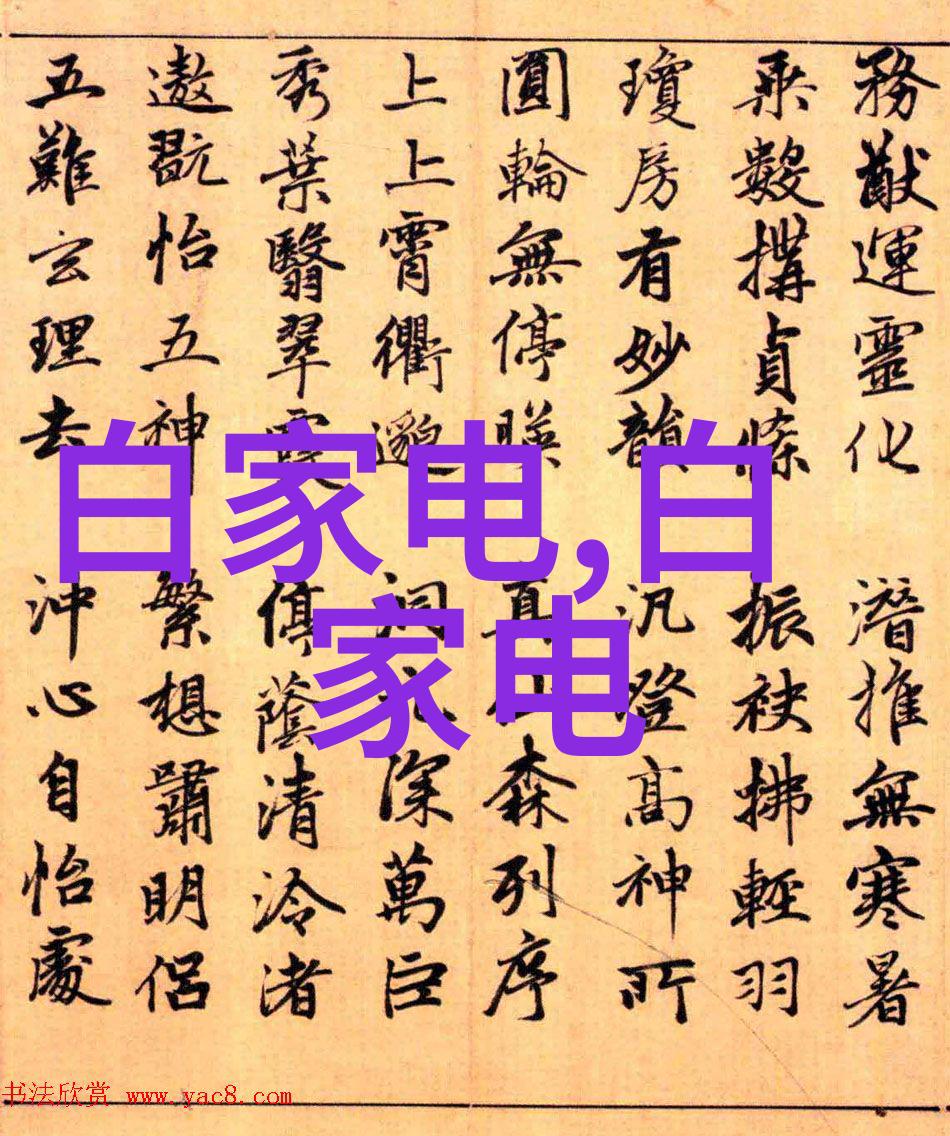 務猷運靈化 潛推無寒暑
乗數搆貞條 振袂拂輕羽
瓊房有妙韻 汎登高神所
圓輪無停暎 真森列序
上上霄衢邈 洞深萬巨
秀葉翳翠霞 停蔭清泠渚
遨翫怡五神 繁想嘯明侶
五難玄理去 沖心自怡處
白家电,白
家电
书法欣赏 www.yac8.com